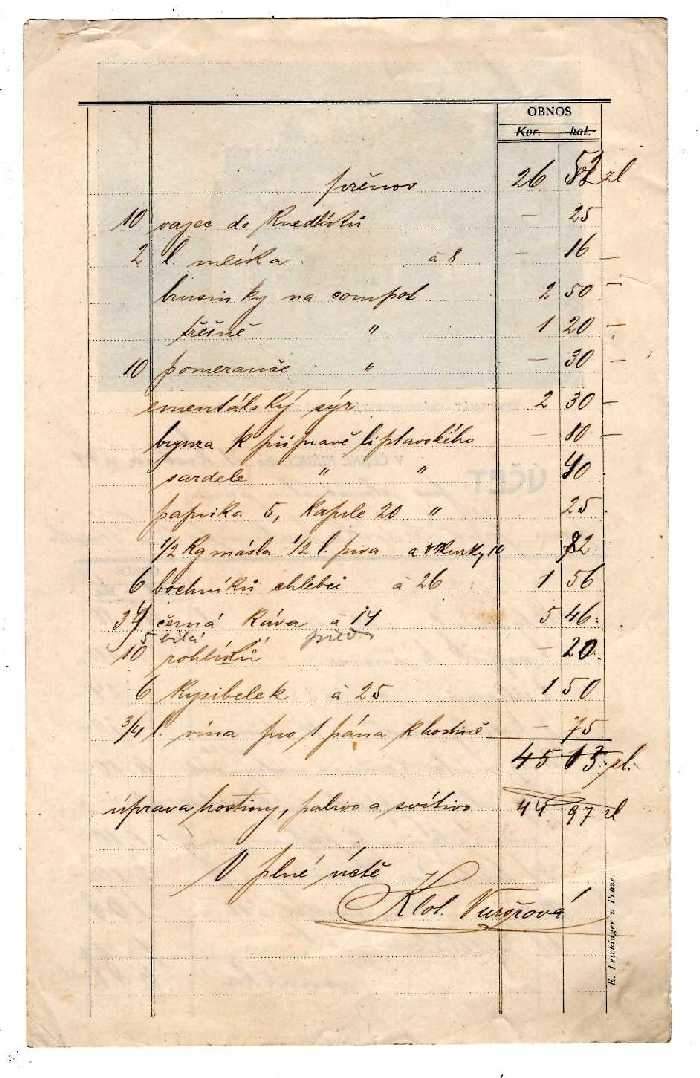 OBNOS
Kor. hal.
přenos 26 52 zl
10 vajec do knedlíků – 25
2 l. mléka á 8 – 16 –
brusinky na compot 2 50 –
třešně " 1 20 –
10 pomeranče " – 30 –
ementálský sýr 2 30 –
brynza k přípravě liptavského – 80 –
sardele " " 40
paprika 5, kaprle 20 " 25
1/2 kg másla 1/2 l. piva a okurky 10
6 bochníků chleba á 26 1 56
34 černá káva a 14 5 46
5 bílá
10 rohlíků – 20
6 kysibelek á 25 1 50
3/4 l. vína pro p. pána k hostině – 75
45 13 zl.
úprava hostiny, palivo a svítivo 44 97 zl
V plné úctě